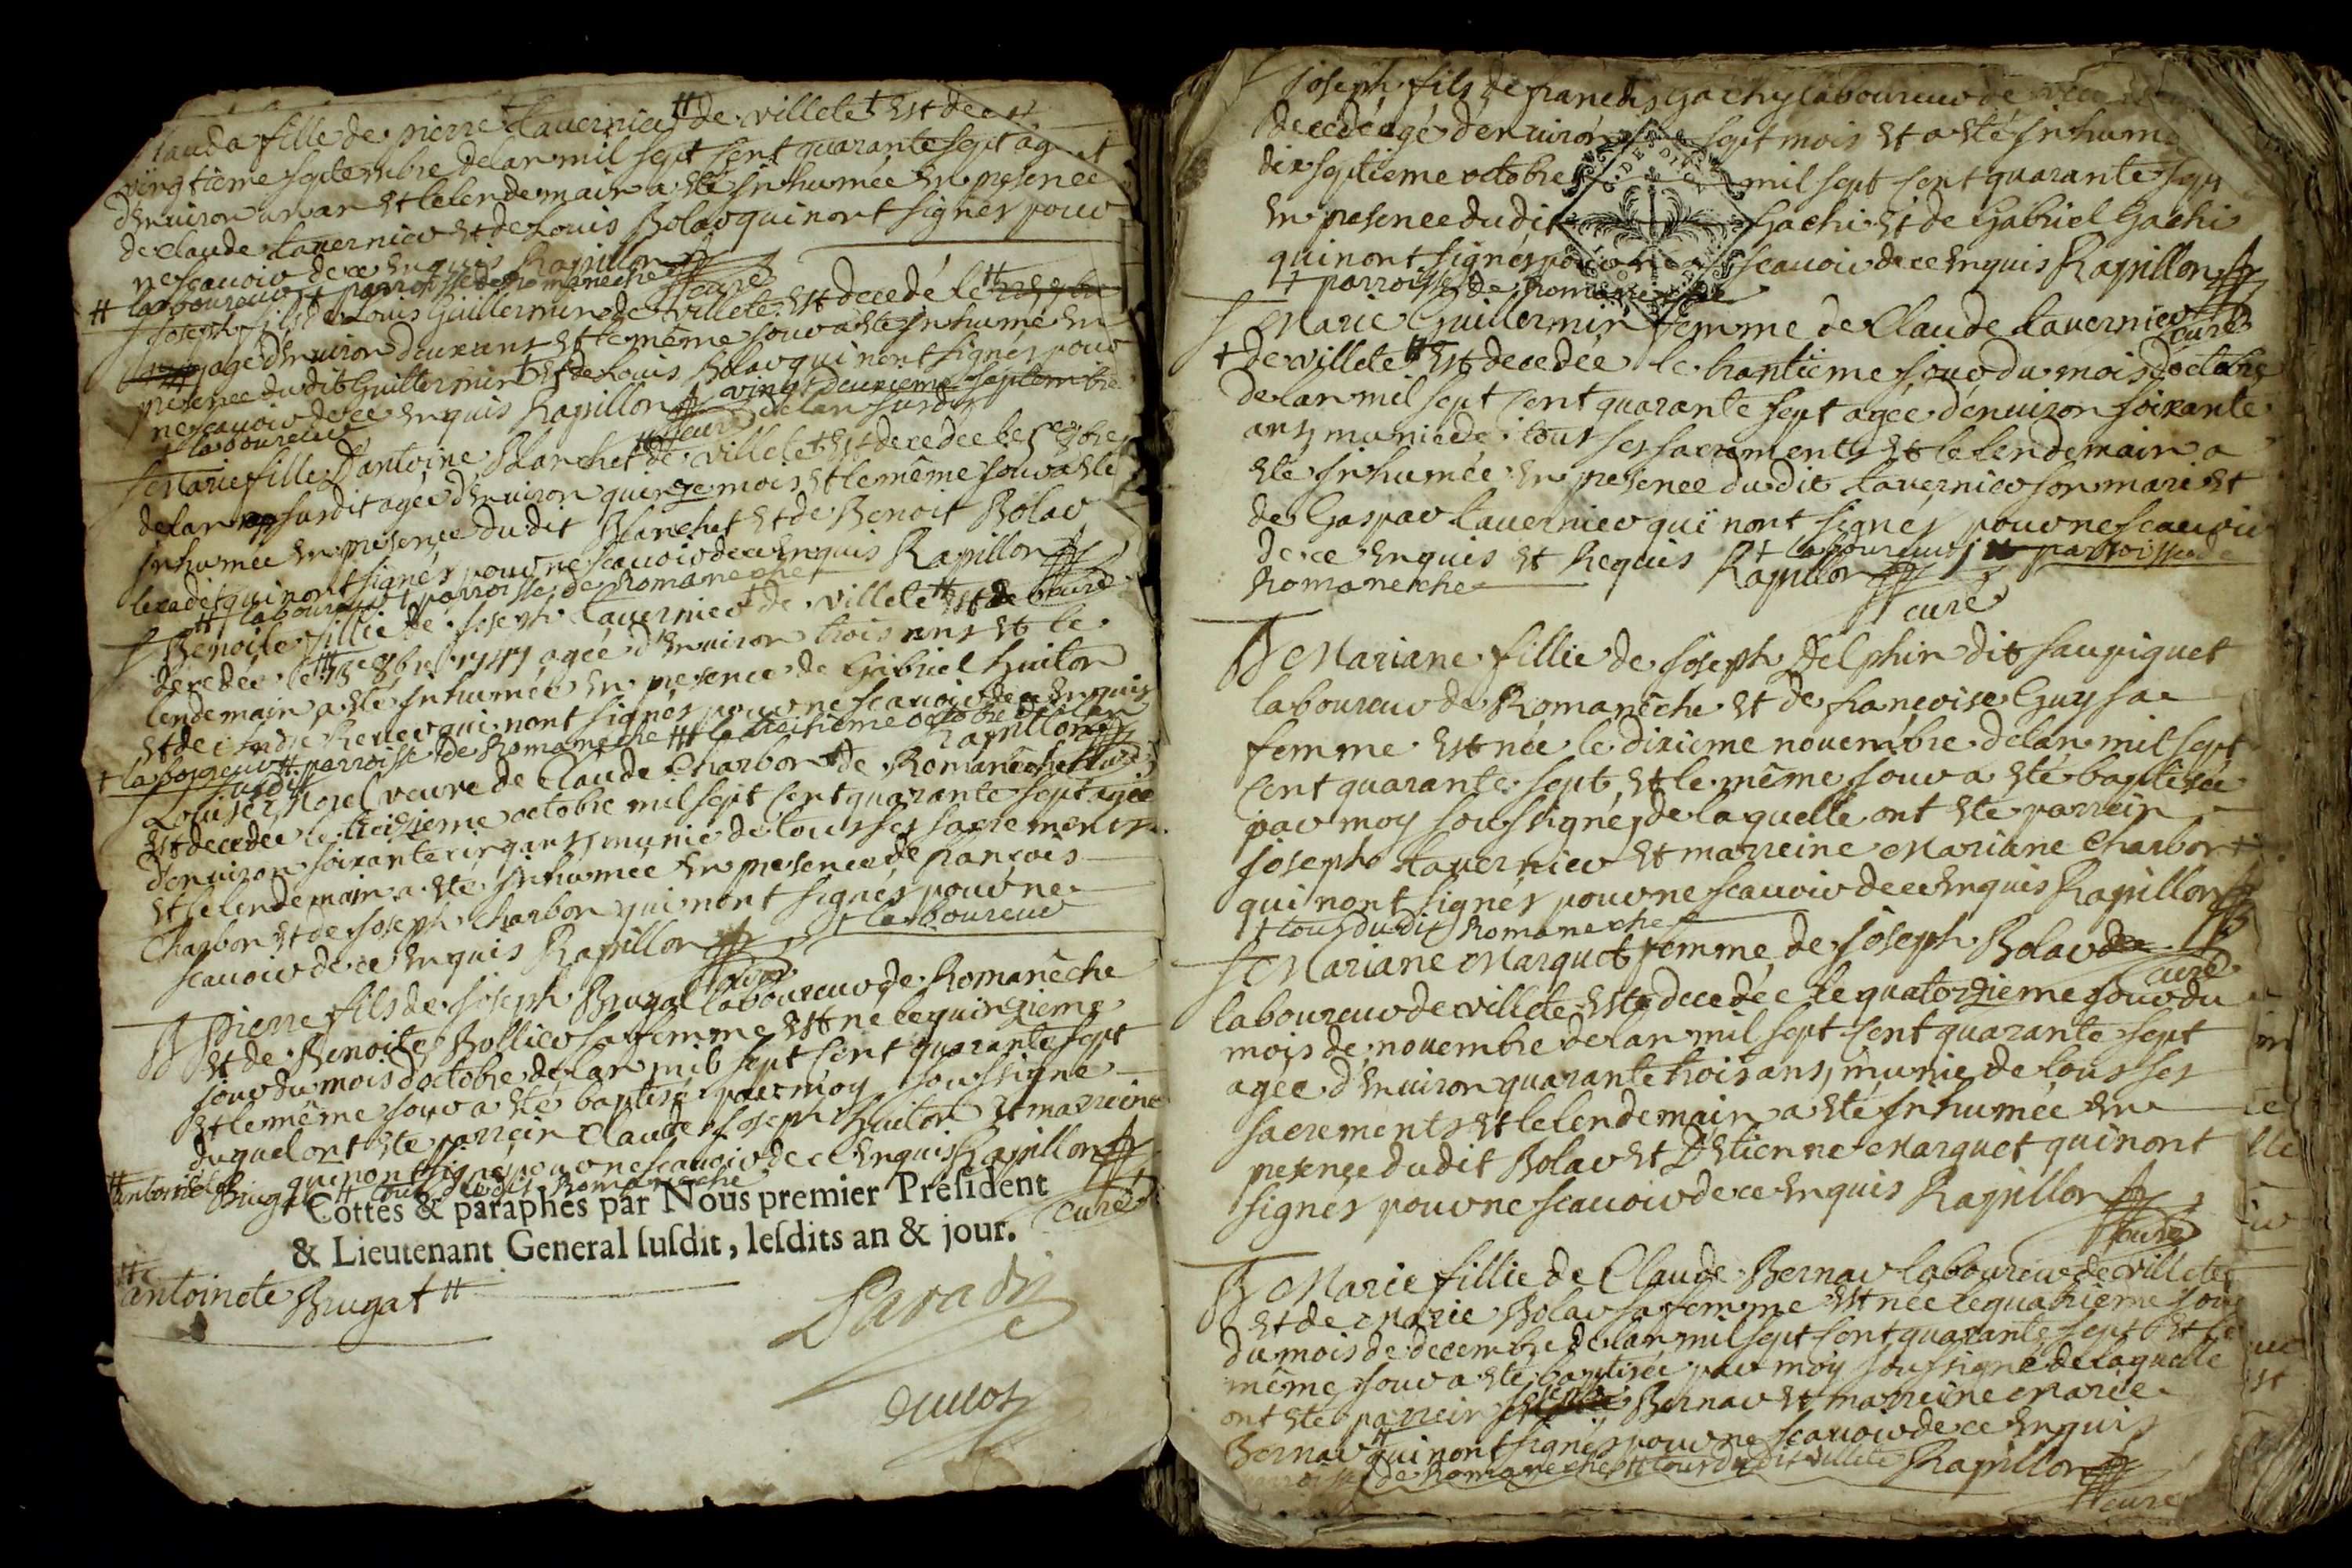 Clauda fille de pierre tavernier # de villete + est decedée
vingtieme septembre de lan mil sept cent quarante sept agée
denviron un an et le lendemain a ete inhumée en presence
de claude tavernier et de Louis Bolar qui nont signés pour
ne scavoir de ce enquis Rapillon curé
# laboureur + parroisse de romaneche
Joseph fils de Louis Guillermin de villete est decedé le
agé denviron deux ans et le même jour a ete inhumé en
presence dudit Guillermin + et de Louis Bolar qui nont signés pour
ne scavoir de ce enquis Rapillon curé vingt deuxieme septembre
+ laboureur de lan susdit
Marie fille Dantoine Blanchet # de villete + est decedée le 5e 8bre
de lan susdit agée denviron quinze mois et le même jour a ete
inhumée en presence dudit Blanchet et de Benoit Bolar
qui nont signés pour ne scavoir de ce enquis Rapillon
# laboureur + parroisse de Romaneche curé
Benoite fillie de Joseph tavernier + de villete # est de
decedée le 13e 8bre 1747 agée denviron trois ans et le
lendemain a ete inhumée en presence de Gabriel huiton
et de qui nont signés pour ne scavoir de ce enquis
+ laboureur # parroisse de Romaneche ### le treisieme octobre de lan
susdit Rapillon curé
Louise Morel veuve de Claude Charbon + de Romanêche
est decedée le treizieme octobre mil sept cent quarante sept agée
denviron soixante cinq ans, munie de tous ses sacrements
et le lendemain a ete inhumée en presence de françois
Charbon et de Joseph charbon qui nont signés pour ne
scavoir de ce enquis Rapillon curé + laboureur
B Pierre fils de Joseph Brugat laboureur de Romanêche
et de Benoite Bollier sa femme est né le quinzieme
jour du mois doctobre de lan mil sept cent quarante sept
et le même jour a ete baptisé par moy soussigné
duquel ont ete parrein Claude Joseph huiton et marreine
# antoinete Brugat qui nont signé pour ne scavoir de ce enquis Rapillon
# tous dudit Romaneche curé
Cottés & paraphés par Nous premier Président
& Lieutenant General susdit, lesdits an & jour.
# antoinete Brugat #
Joseph fils de francois Gachy laboureur de
decedé agé denviron sept mois et a eté inhumé
dix septieme octobre mil sept cent quarante sept
en presence dudit Gachi et de Gabriel Gachi
qui nont signés pour ne scavoir de ce enquis Rapillon
+ parroisse de Romaneche
Marie Guillermin femme de Claude tavernier curé
+ de villete # est decedée le trantïeme jour du mois doctobre
de lan mil sept cent quarante sept agée denviron soixante
ans, munie de tous ses sacrements et le lendemain a
ete inhumée en presence dudit tavernier son mari et
de Gaspar tavernier quï nont signés pour ne scavoir
de ce enquis et Requis Rapillon + laboureur # parroisse de
Romaneche curé
B Mariane fillie de Joseph Delphin dit saupiquet
laboureur de Romanêche et de françoise Guy sa
femme est née le dixieme novembre de lan mil sept
cent quarante sept, et le même jour a eté baptisée
par moy soussigné, de laquelle ont ete parrein
Joseph tavernier et marreine Mariane Charbon +
qui nont signés pour ne scavoir de ce enquis Rapillon
+ tous dudit Romaneche curé
Mariane Marquet femme de Joseph Bolar
laboureur de villete est decedée le quatorzieme jour du
mois de novembre de lan mil sept cent quarante sept
agée denviron quarante trois ans, munie de tous ses
sacrements et le lendemain a ete inhumée en
presence dudit Bolar et Detienne Marquet qui nont
signés pour ne scavoir de ce enquis Rapillon
curé
B Marie fillie de Claude Bernar laboureur de villete
et de Marie Bolar sa femme est née le quatrieme jour
du mois de decembre de lan mil sept cent quarante sept et le
même jour a ete baptisée par moy soussigné de laquelle
ont ete parrein Bernar et marreine Marie
Bernar # qui nont signés pour ne scavoir de ce enquis
parroisse de Romaneche # tous dudit villete Rapillon
curé